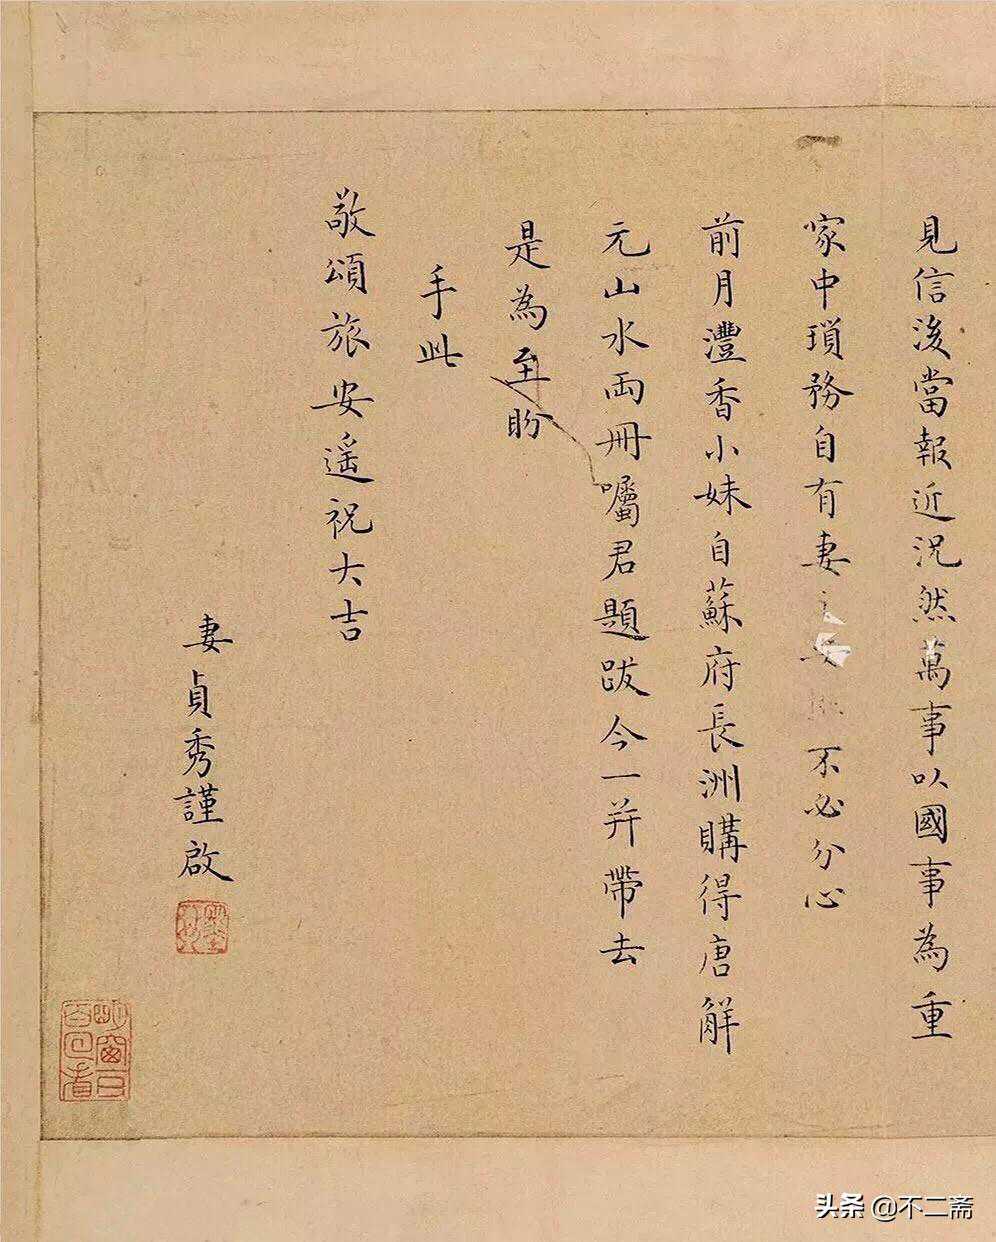 見信後當報近況然萬事以國事為重
家中瑣務自有妻 不必分心
前月灃香小妹自蘇府長洲購得唐解
元山水兩冊囑君題跋今一并帶去
是為至盼
手此
敬頌旅安遥祝大吉
妻貞秀謹啟
头条 @不二斋